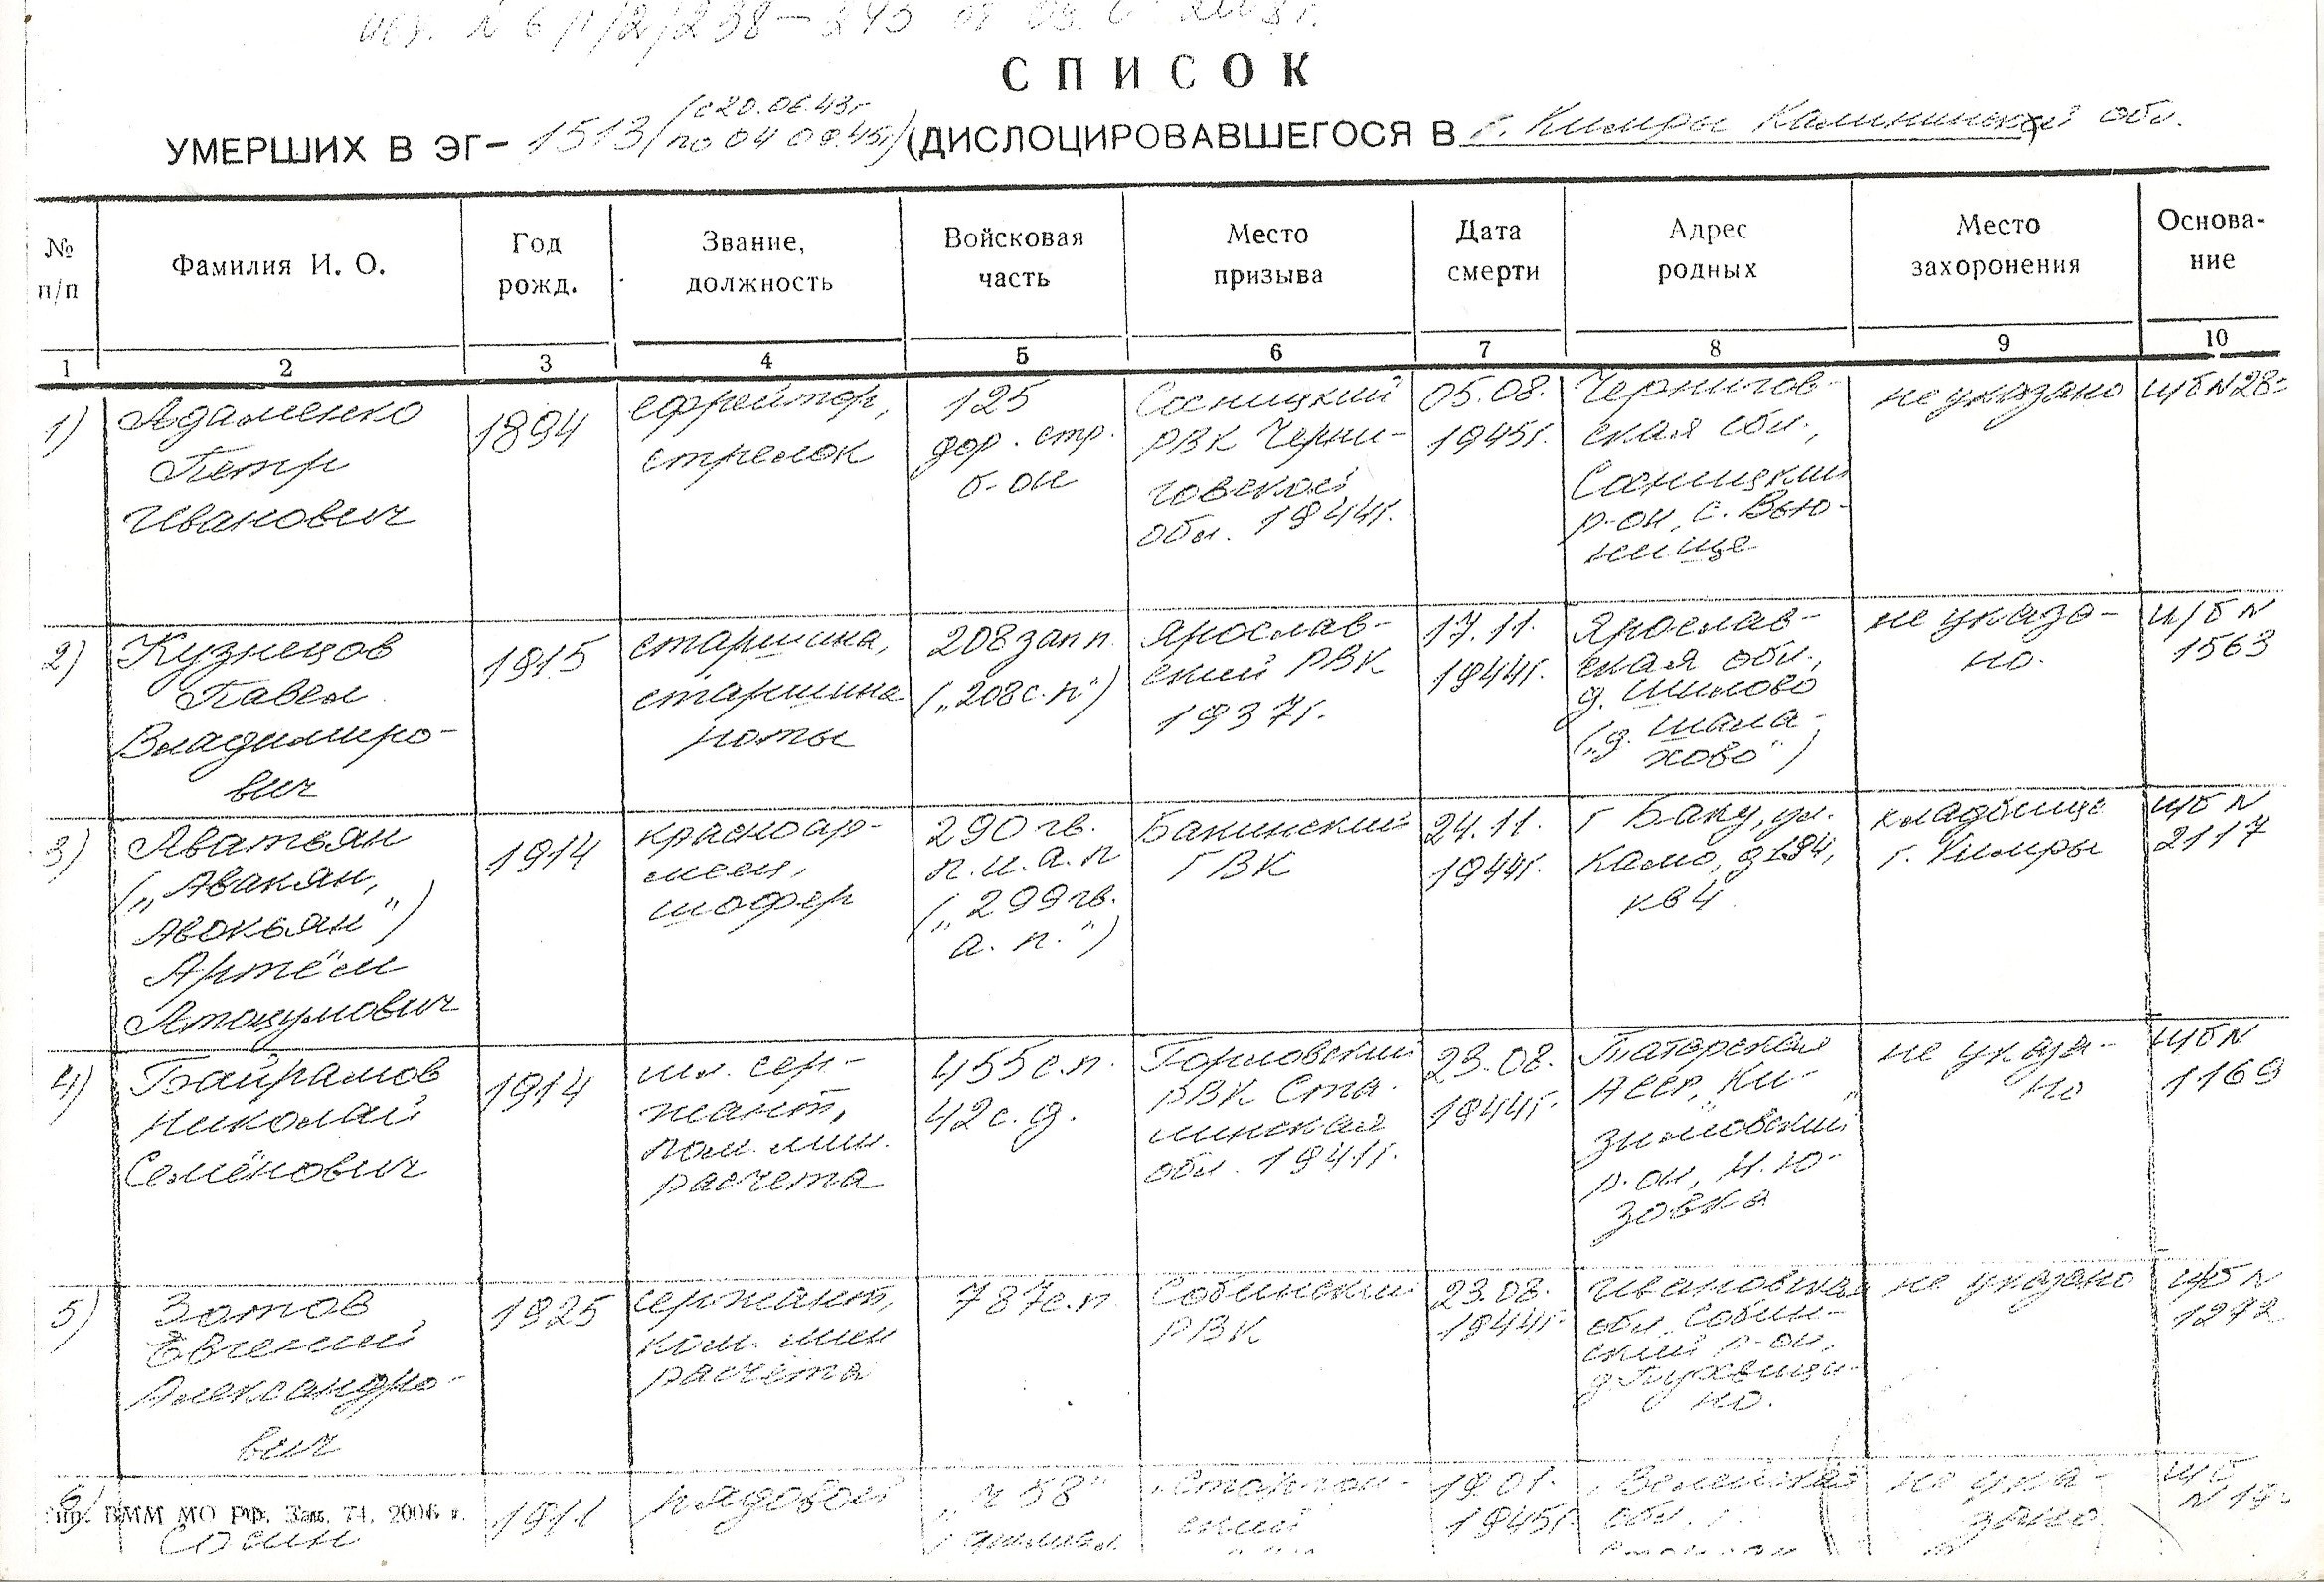 исх. N 6/1/2/238-
СПИСОК
УМЕРШИХ В ЭГ- 1513 (с 20.06.43г по 04 09.45г) (ДИСЛОЦИРОВАВШЕГОСЯ В г. Кимры Калининской обл.
№ п/п
Фамилия И. О.
Год рожд.
Звание, должность
Войсковая часть
Место призыва
Дата смерти
Адрес родных
Место захоронения
Основа-
ние
1 2 3 4 5 6 7 8 9 10
1)
Адаменко
Петр
Иванович
1894
ефрейтор,
стрелок
125
дор. стр.
б-он
Сосницкий
РВК Черни-
говской
обл. 1944г.
05.08.
1945г.
Чернигов-
ская обл.,
Сосницкий
р-он, с. Вью-
нище
не указано
и/б N 28
2)
Кузнецов
Павел
Владимиро-
вич
1915
старшина,
старшина
роты
208 зап п.
(„208 с.п")
Ярослав-
ский РВК
1937г.
17.11.
1944г.
Ярослав-
ская обл.,
д. Шилово
(„д. Шала-
хово")
не указа-
но.
и/б N
1563
3)
Аватьян
(„Авакян,
Авокьян")
Артём
1914
красноар-
меец,
шофер
290 гв.
п.и.а.п
(„299 гв.
а.п.")
Бакинский
ГВК
24.11.
1944г.
г Баку, ул.
Камо, д 194,
кв 4
кладбище
г. Кимры
и/б N
2117
4)
Байрамов
Николай
Семёнович
1914
мл. сер-
жант,
пом. мин.
расчета
455 с.п.
42 с.д.
Горловский
РВК Ста-
линская
обл. 1941г.
23.08.
1944г.
Татарская
АССР, „Ки-
зиловский"
р-он, Н. Ю-
зовка
не указа-
но
и/б N
1169
5)
Зотов
Евгений
Александро-
вич
1925
сержант,
ком. мин
расчёта
787 с.п
Собинский
РВК
23.08.
1944г.
Ивановская
обл. Собин-
ский р-он,
не указано
и/б N
1272
6)
ВММ МО РФ. Зак. 74. 2006 г.
рядовой
19 01.
1945г.
обл. г.
не ука-
зано
и/б
N 19